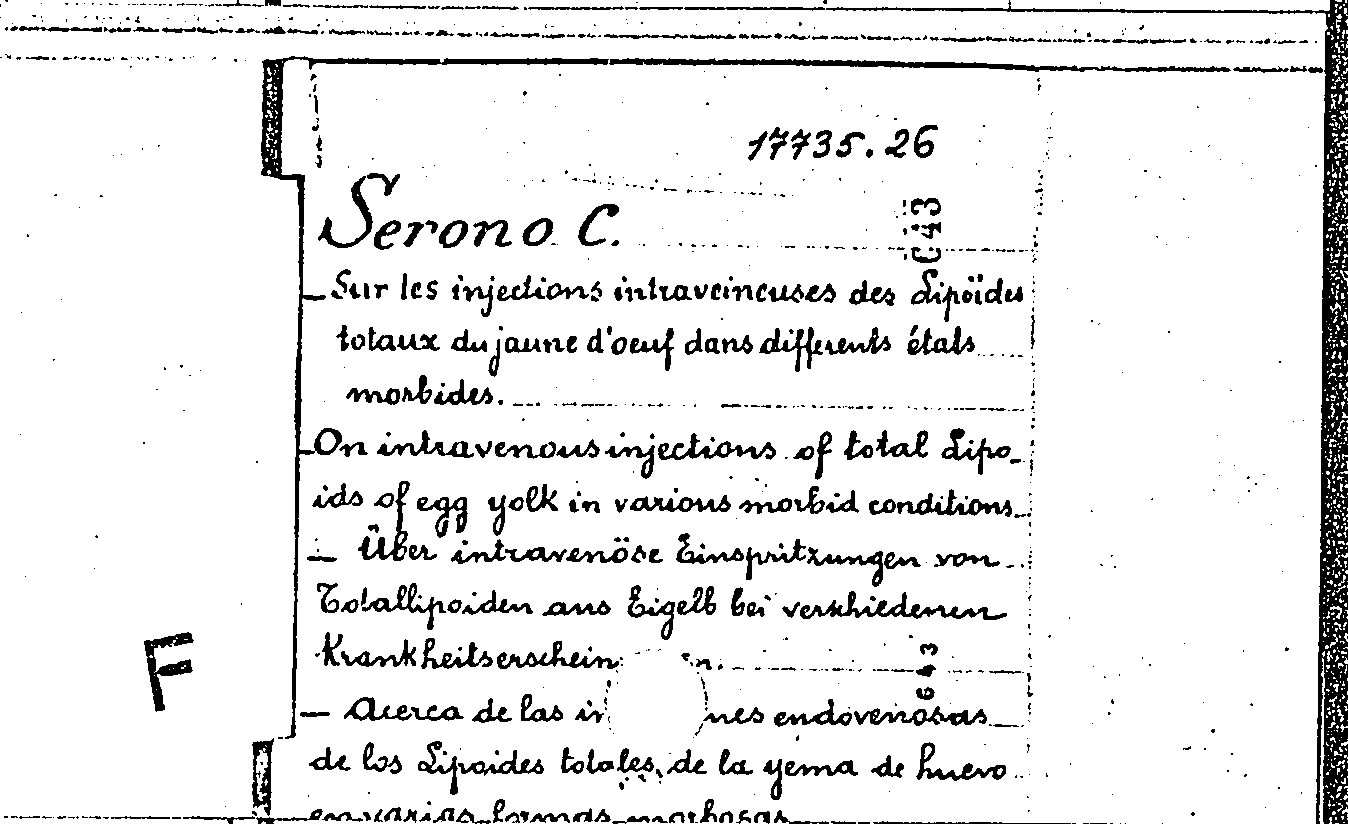 17735.26
C43
Serono C.
— Sur les injections intraveineuses des Lipoïdes
totaux du jaune d'oeuf dans differents états
morbides.
— On intravenous injections of total Lipo-
ids of egg yolk in various morbid conditions
— Über intravenöse Einspritzungen von
Totallipoiden aus Eigelb bei verschiedenen
Krankheitserschein n.
643
— Acerca de las in nes endovenosas
de los Lipoides totales, de la yema de huevo
en varias formas morbosas
F